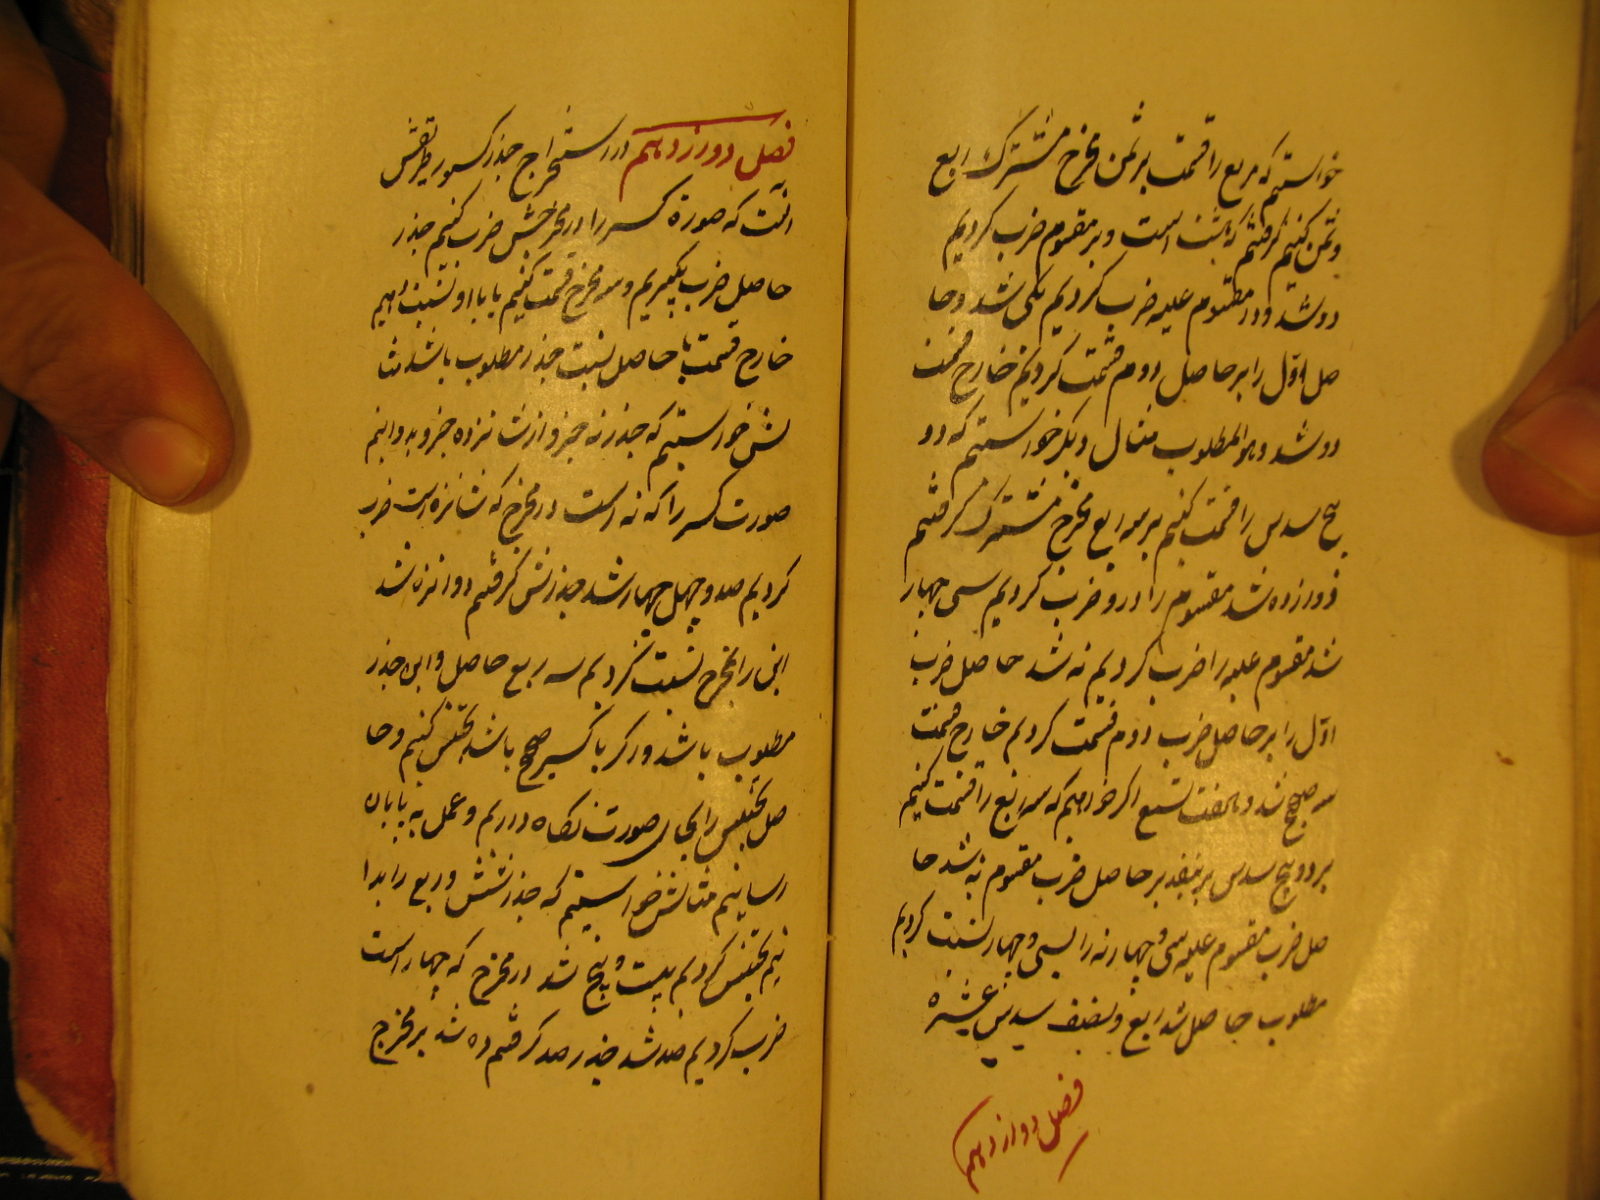 خواستیم که ربع را قسمت بر ثمن مخرج مشترک ربع
و ثمن کنیم گرفتیم که هشت است و بر مقسوم ضرب کردیم
دو شد و در مقسوم علیه ضرب کردیم یکی شد و حا
صل اول را بر حاصل دوم قسمت کردیم خارج قسمت
دو شد و هو المطلوب مثال دیگر خواستیم که دو
پنج سدس را قسمت کنیم بر سه ربع مخرج مشترک گرفتیم
دوازده شد مقسوم را درو ضرب کردیم سی چهار
شد مقسوم علیه را ضرب کردیم نه شد حاصل ضرب
اول را بر حاصل ضرب دوم قسمت کردیم خارج قسمت
سه صحیح شد و هفت تسع اگر خواهیم که سه ربع را قسمت کنیم
بر دو پنج سدس حاصل ضرب مقسوم نه شد حا
صل ضرب مقسوم علیه سی و چهار نه را بسی و چهار نسبت کردیم
مطلوب حاصل شد ربع و نصف سدس
فصل دوازدهم
فصل دوازدهم در استخراج جذر کسور طریقش
آنست که صورة کسر را در مخرجش ضرب کنیم جذر
حاصل ضرب بگیریم و بر مخرج قسمت کنیم یا با او نسبت دهیم
خارج قسمت یا حاصل نسبت جذر مطلوب باشد مثا
لش خواستیم که جذر نه جزو از شانزده جزو بدانیم
صورت کسر را که نه است در مخرج که شانزده است ضرب
کردیم صد و چهل چهار شد جذرش گرفتیم دوانزده شد
این را بمخرج نسبت کردیم سه ربع حاصل و این جذر
مطلوب باشد و اگر با کسر صحیح باشد تجنیس کنیم و حا
صل تجنیس را بجای صورت نگاه داریم و عمل به پایان
رسانیم مثالش خواستیم که جذر شش و ربع را بدا
نیم تجنیس کردیم بیست و پنج شد در مخرج که چهار است
ضرب کردیم صد شد جذر صد گرفتیم ده شد بر مخرج